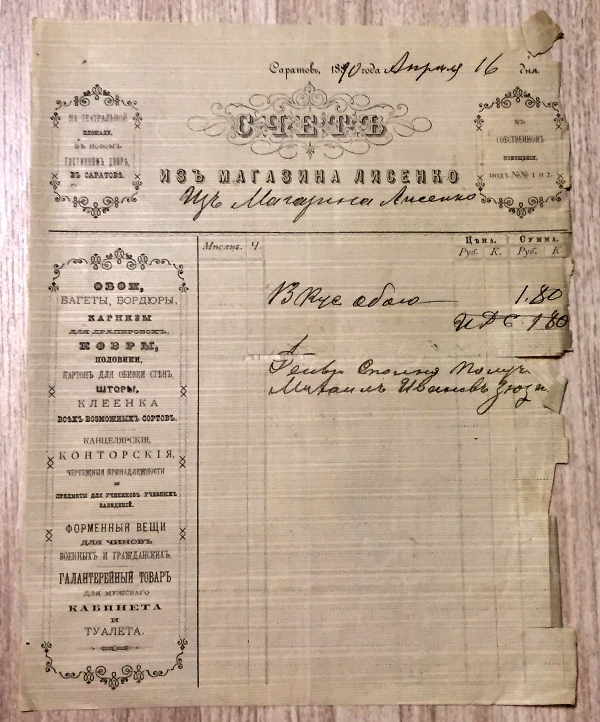 Саратовъ, 1890 года Апреля 16 дня.
НА ТЕАТРАЛЬНОЙ
ПЛОЩАДИ,
ВЪ НОВОМЪ
ГОСТИННОМЪ ДВОРѢ,
ВЪ САРАТОВѢ.
СЧЕТЪ
ВЪ
СОБСТВЕННОМЪ
ПОМѢЩЕНІИ,
ПОДЪ №№ 1 и 2.
ИЗЪ МАГАЗИНА ЛИСЕНКО
Изъ Магазина Лисенко
Мѣсяцъ. Ч. Цѣна. Сумма.
Руб. К. Руб. К
кус обою 1.80
1 80
Михаилъ Ивановъ
ОБОИ,
БАГЕТЫ, БОРДЮРЫ,
КАРНИЗЫ
ДЛЯ ДРАПИРОВОКЪ,
КОВРЫ,
ПОЛОВИКИ,
КАРТОНЪ ДЛЯ ОБИВКИ СТѢНЪ,
ШТОРЫ,
КЛЕЕНКА
ВСѢХЪ ВОЗМОЖНЫХЪ СОРТОВЪ.
КАНЦЕЛЯРСКІЯ,
КОНТОРСКІЯ,
ЧЕРТЕЖНЫЯ ПРИНАДЛЕЖНОСТИ
И
ПРЕДМЕТЫ ДЛЯ УЧЕНИКОВЪ УЧЕБНЫХЪ
ЗАВЕДЕНІЙ.
ФОРМЕННЫЯ ВЕЩИ
ДЛЯ ЧИНОВЪ
ВОЕННЫХЪ И ГРАЖДАНСКИХЪ.
ГАЛАНТЕРЕЙНЫЙ ТОВАРЪ
ДЛЯ МУЖСКАГО
КАБИНЕТА
И
ТУАЛЕТА.